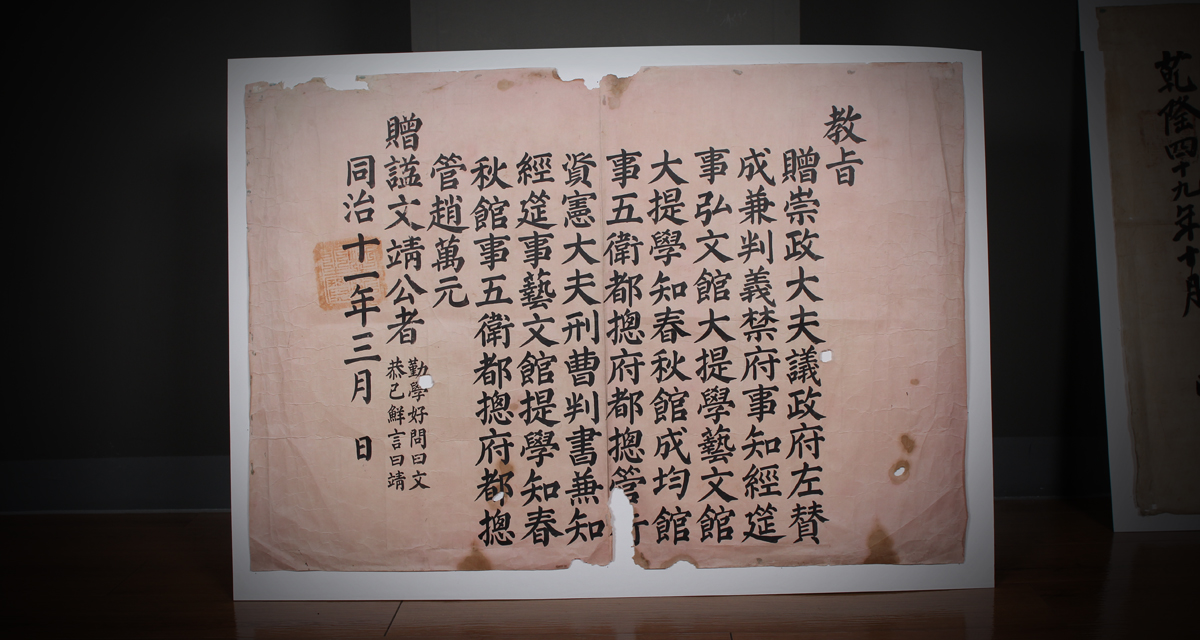 教旨
贈崇政大夫議政府左贊
成兼判義禁府事知經筵
事弘文館大提學藝文館
大提學知春秋館成均館
事五衛都摠府都摠管行
資憲大夫刑曹判書兼知
經筵事藝文館提學知春
秋館事五衛都摠府都摠
管趙萬元
贈諡文靖公者
勤學好問曰文
恭己鮮言曰靖
同治十一年三月 日
乾隆四十九年十月